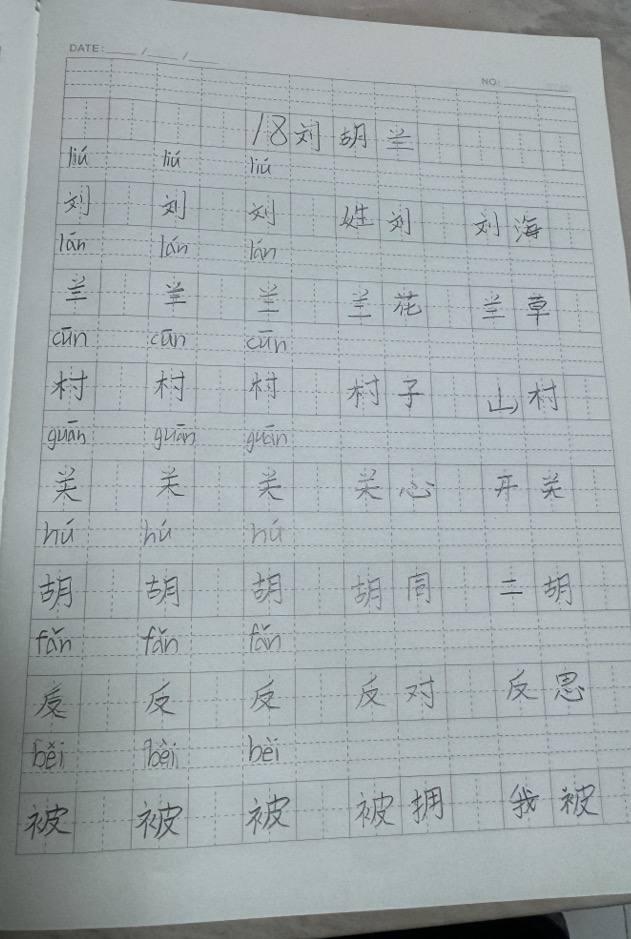 DATE: ___/___/___
NO: ______
18刘胡兰
liú liú liú
刘 刘 刘 姓刘 刘海
lán lán lán
兰 兰 兰 兰花 兰草
cūn cūn cūn
村 村 村 村子 山村
guān guān guān
关 关 关 关心 开关
hú hú hú
胡 胡 胡 胡同 二胡
fǎn fǎn fǎn
反 反 反 反对 反思
běi bèi bèi
被 被 被 被拥 我被